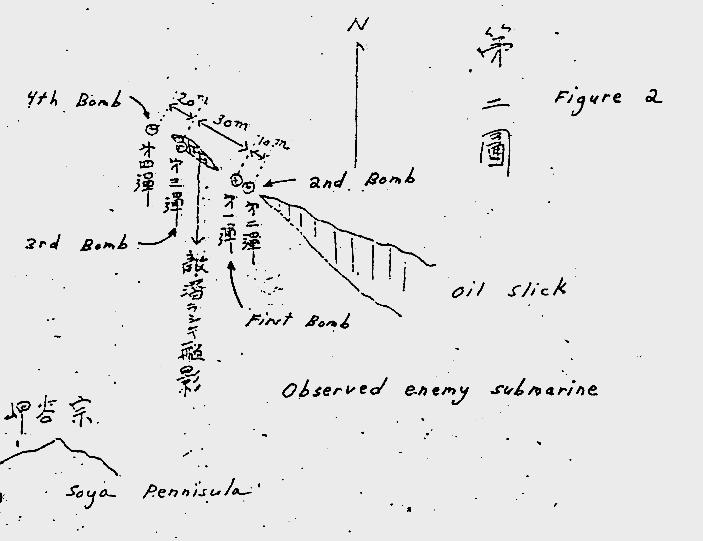 N
第二圖
Figure 2
4th Bomb
20m
30m
10m
第四彈
第三彈
2nd Bomb
第一彈
第二彈
3rd Bomb
敵潛ラシキ艦影
First Bomb
Oil slick
Observed enemy submarine
岬谷宗
Soya Pennisula